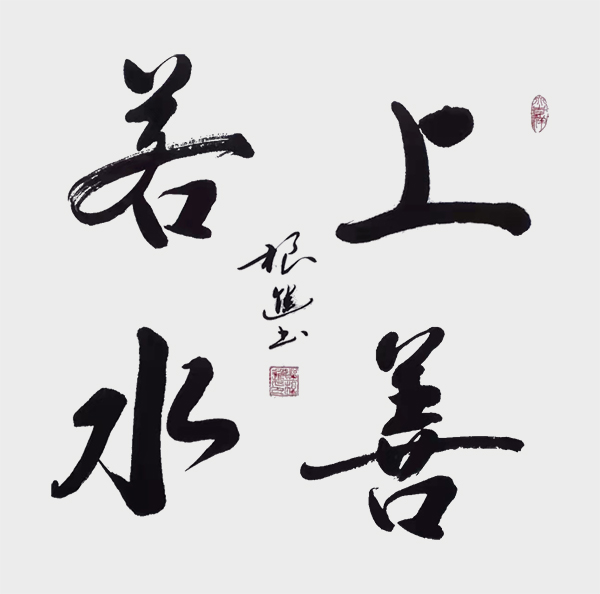 上善
若水
根進书